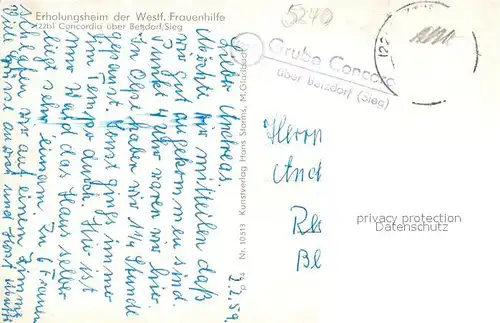 Erholungsheim der Westf. Frauenhilfe
(22b) Concordia über Betzdorf/Sieg
5240
Grube Concord
über Betzdorf (Sieg)
(22
2.2.59.
Lieber Andreas.
Möchte Dir mitteilen daß
wir gut angekommen sind.
Punkt 4 Uhr waren wir hier.
In Olpe haben wir 1/4 Stunde
gepaust. Sonst gings immer
im Tempo durch. Hier ist
nur Wald, das Haus selber
liegt sehr einsam. Zu 6 Frauen
schlafen wir auf einem Zimmer.
Viele Grüsse auch und
Nr. 10513 Kunstverlag Hans Storms, M.Gladbach
Herrn
And
Bl
privacy protection
Datenschutz